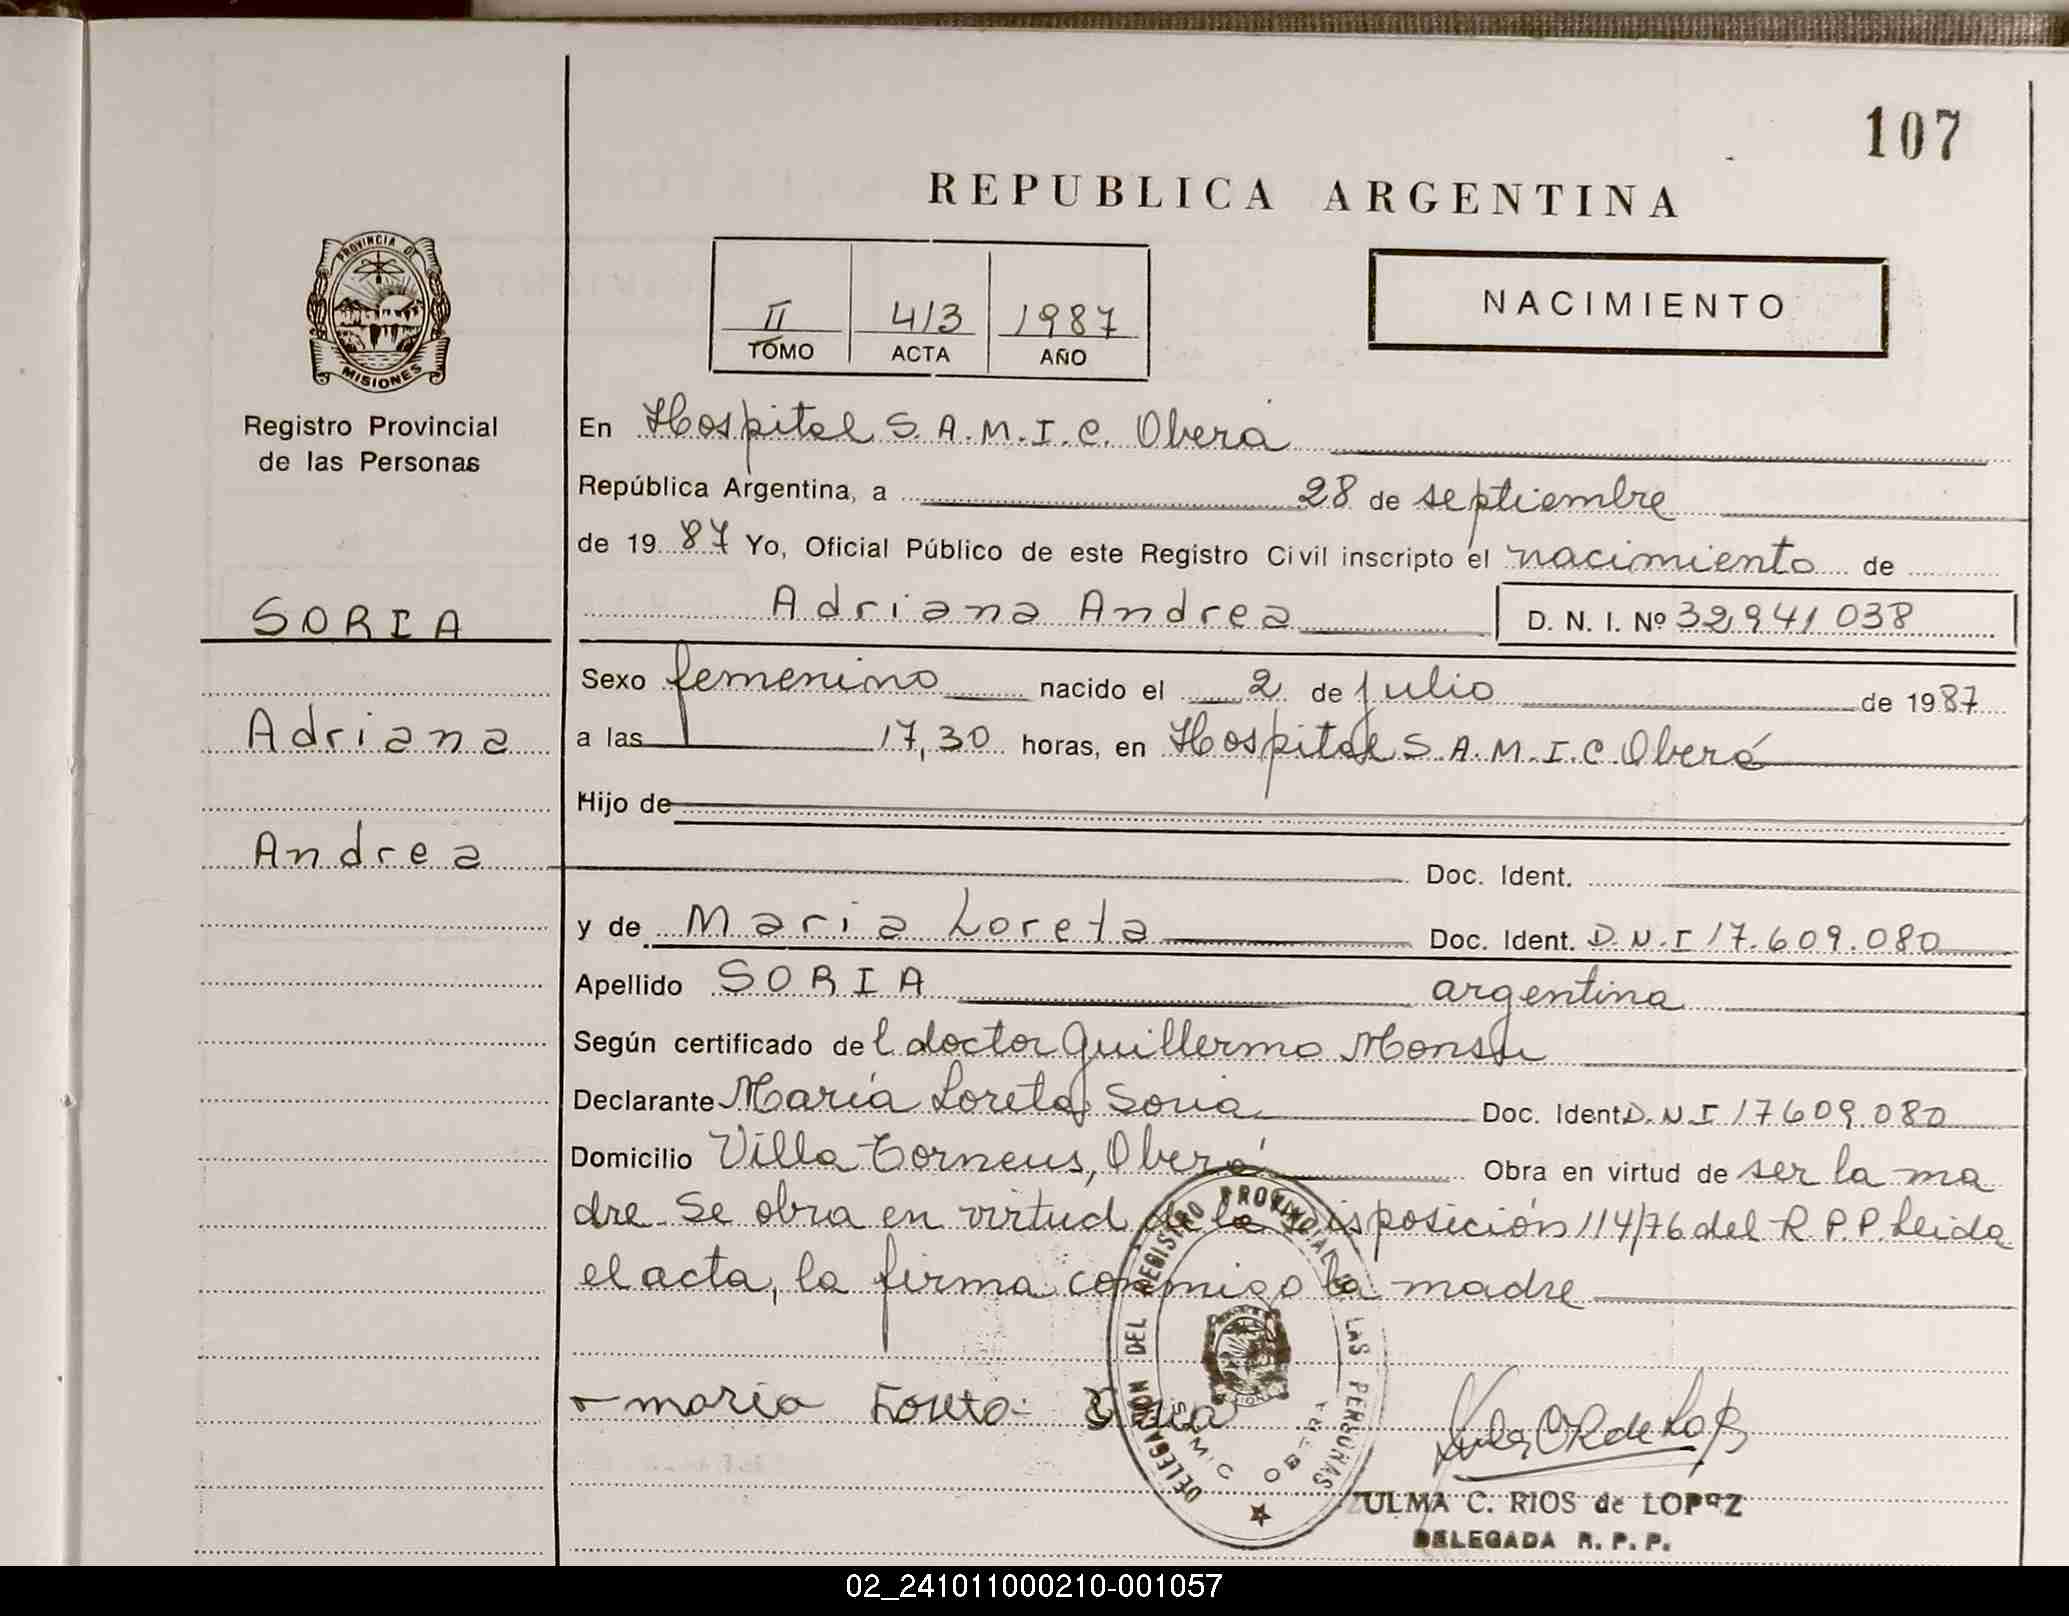 107
REPUBLICA ARGENTINA
PROVINCIA DE
MISIONES
Registro Provincial
de las Personas
II 413 1987
TOMO ACTA AÑO
NACIMIENTO
En Hospital S.A.M.I.C. Oberá
República Argentina, a 28 de septiembre
de 1987 Yo, Oficial Público de este Registro Civil inscripto el nacimiento de
SORIA
Adriana Andrea D. N. I. Nº 32941038
Sexo femenino nacido el 2 de julio de 1987
Adriana
a las 17,30 horas, en Hospital S.A.M.I.C. Oberá
Hijo de
Andrea
Doc. Ident.
y de Maria Loreta Doc. Ident. D.N.I 17.609.080
Apellido SORIA argentina
Según certificado del doctor Guillermo
Declarante María Loreta Soria Doc. Ident. D.N.I 17609.080
Domicilio Villa Torneus, Oberá Obra en virtud de ser la ma
dre. Se obra en virtud de la disposición 114/76 del R.P.P. Leida
el acta, la firma conmigo la madre
maria Loreta Soria
DELEGACION DEL REGISTRO PROVINCIAL DE LAS PERSONAS
SAMIC OBERA
ZULMA C. RIOS de LOPEZ
DELEGADA R. P. P.
02_241011000210-001057